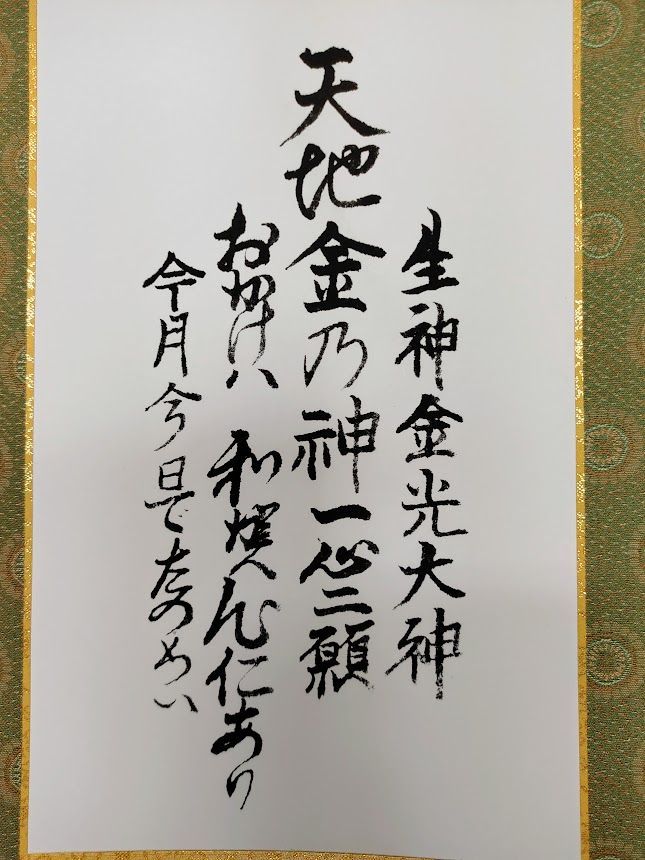 生神金光大神
天地金乃神一心ニ願
おかけハ 和賀心仁あり
今月今日でたのめい